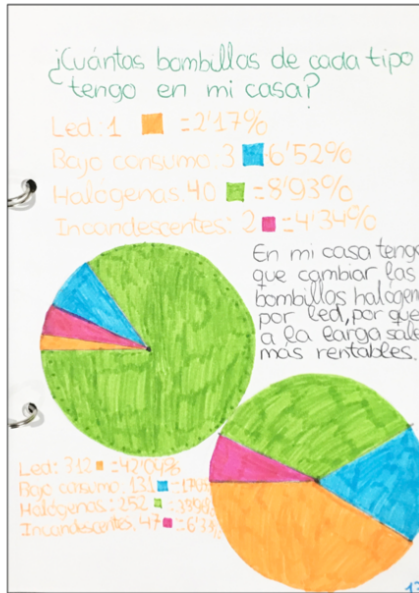 ¿Cuántas bombillas de cada tipo
tengo en mi casa?
Led: 1 = 2'17%
Bajo consumo: 3 = 6'52%
Halógenas: 40 = 8'93%
Incandescentes: 2 = 4'34%
En mi casa tengo
que cambiar las
bombillas halógen
por led, por que
a la larga sale
más rentables.
Led: 312 = 42'04%
Bajo consumo: 131
Halógenas: 252
Incandescentes: 47 = 6'3